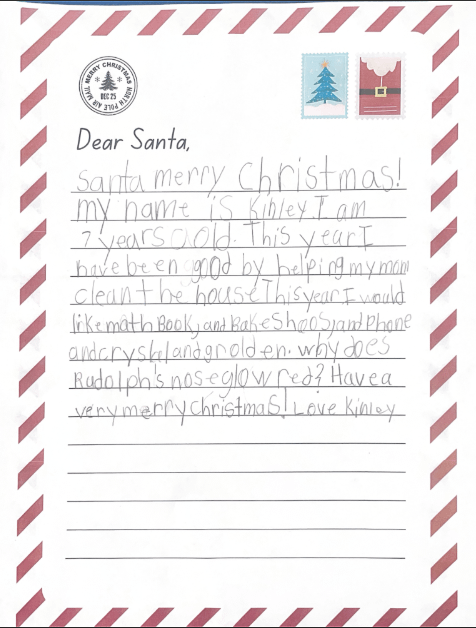 MERRY CHRISTMAS
DEC 25
NORTH POLE AIR MAIL
Dear Santa,
Santa merry Christmas!
my name is Kinley I am
7 years old. This year I
have been good by helping my mom
clean the house This year I would
like math Book, and Bake Shoos, and Phone
and crystal and grolden. why does
Rudolph's nose glow red? Have a
very merry christmas! Love Kinley